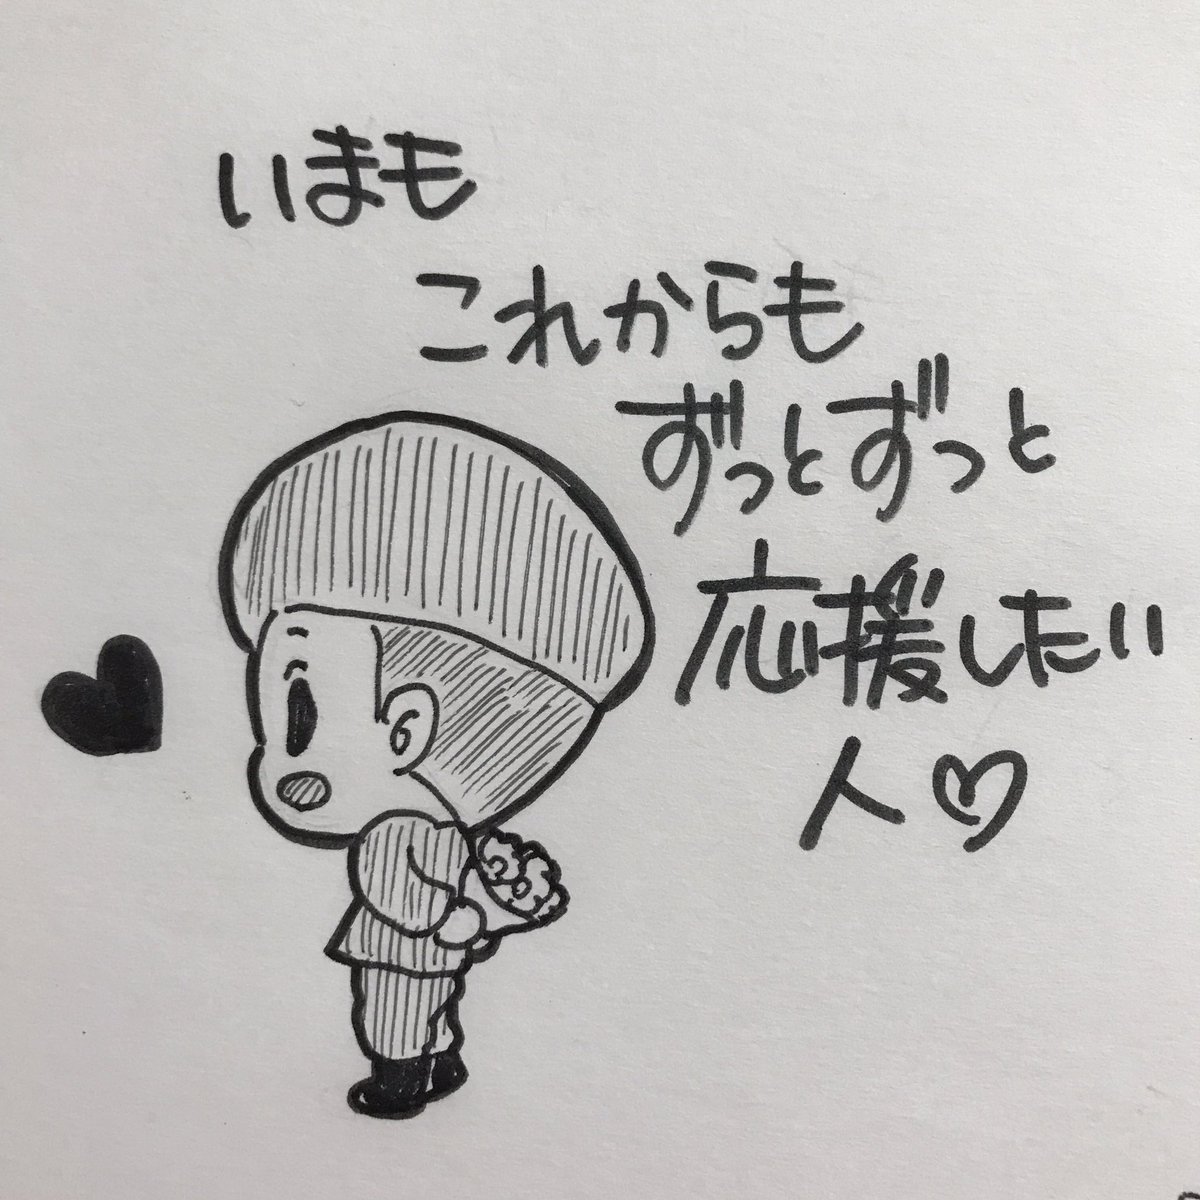 いまも
これからも
ずっとずっと
応援したい
人♡